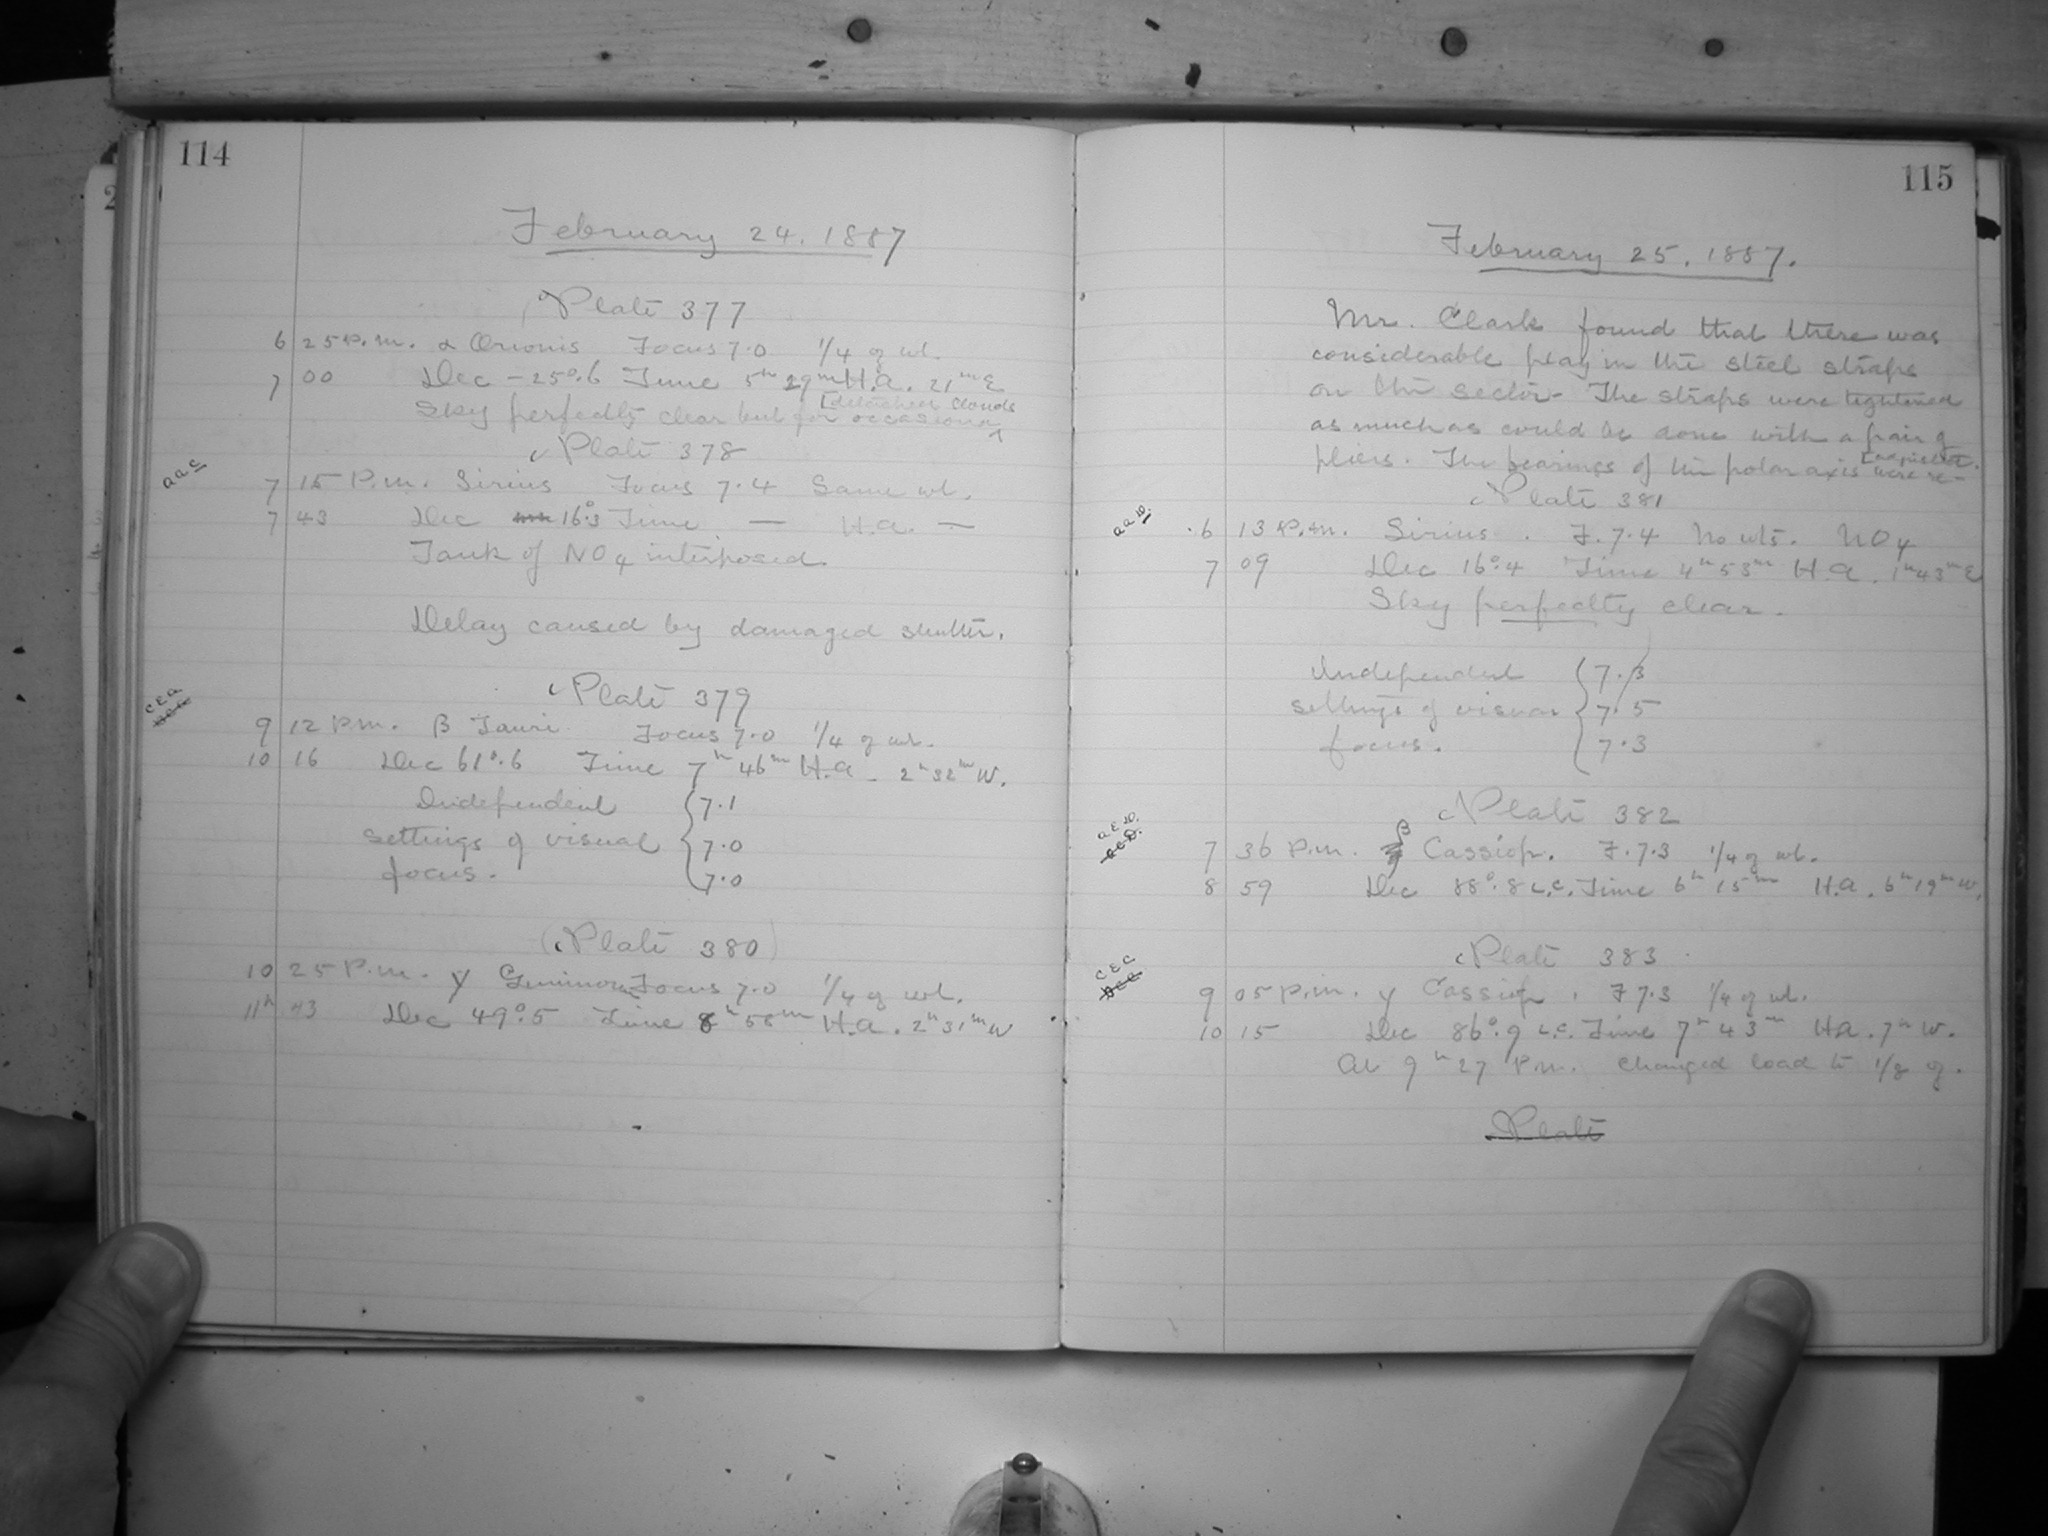 114
February 24, 1887
Plate 377
6 25 P.m. α Orionis Focus 7.0 1/4 of wt.
7 00 Dec -25°.6 Time 5h 29m H.A. 21m E
Sky perfectly clear but for occasional [detached clouds
Plate 378
A A C
7 15 P.m. Sirius Focus 7.4 Same wt.
7 43 Dec 16°.3 Time — H.A. —
Tank of NO4 interposed.
Delay caused by damaged shutter.
Plate 379
C E A
9 12 P.m. β Tauri Focus 7.0 1/4 of wt.
10 16 Dec 61°.6 Time 7h 46m H.A. 2h 32m W.
Independent { 7.1
settings of visual { 7.0
focus. { 7.0
(Plate 380)
10 25 P.m. γ Geminor Focus 7.0 1/4 of wt.
11h 43 Dec 49°.5 Time 8h 58m H.A. 2h 31m W
115
February 25, 1887.
Mr. Clark found that there was
considerable play in the steel straps
on the sector. The straps were tightened
as much as could be done with a pair of
pliers. The bearings of the polar axis were re-[adjusted.
Plate 381
A A D.
6 13 P.m. Sirius. F. 7.4 No wts. NO4
7 09 Dec 16°.4 Time 4h 53m H.A. 1h 43m E
Sky perfectly clear.
Independent { 7.3
settings of visual { 7.5
focus. { 7.3
Plate 382
A E D.
7 36 P.m. β Cassiop. F. 7.3 1/4 of wt.
8 59 Dec 88°.8 L.C. Time 6h 15m H.A. 6h 19m W.
Plate 383
C E C
9 05 P.m. γ Cassiop. F 7.3 1/4 of wt.
10 15 Dec 86°.9 L.C. Time 7h 43m H.A. 7h W.
At 9h 27 P.m. changed load to 1/8 of.
Plate